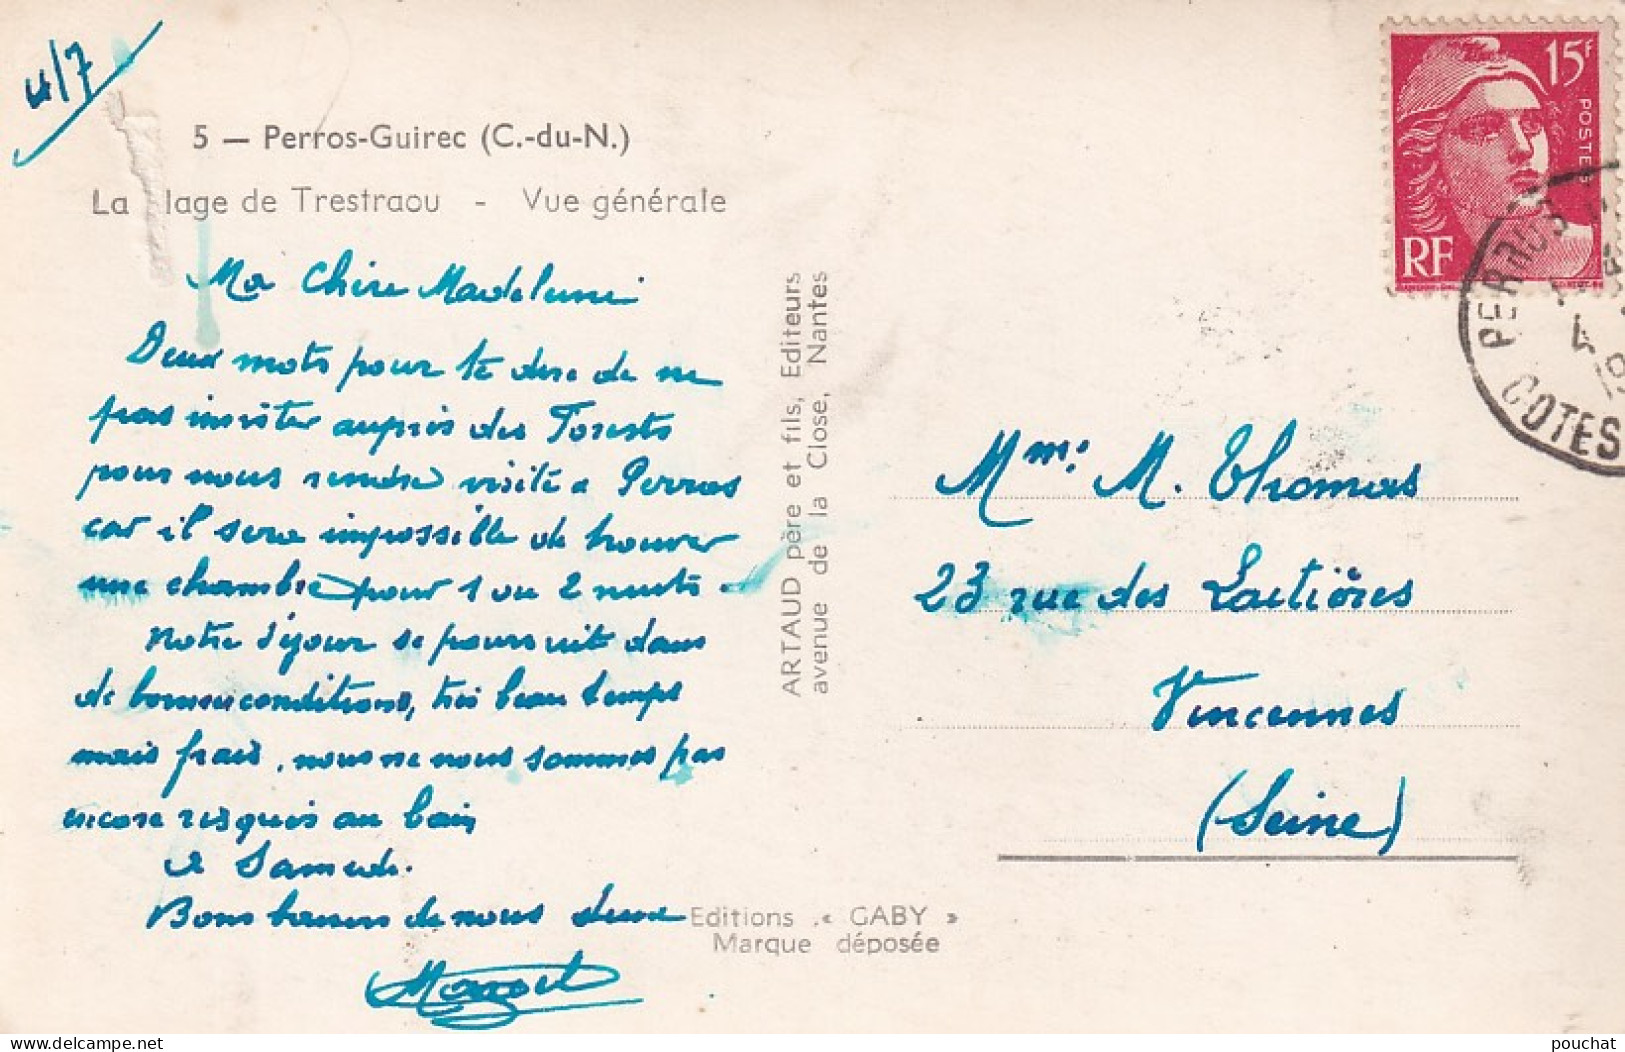 4/7
5 — Perros-Guirec (C.-du-N.)
La lage de Trestraou - Vue générale
Ma Chère Madeleine
Deux mots pour te dire de ne
pas insister auprès des Forests
pour nous rendre visite a Perros
car il sera impossible de trouver
une chambre pour 1 ou 2 nuits.
Notre séjour se poursuit dans
de bonnes conditions, très beau temps
mais frais, nous ne nous sommes pas
encore risqués au bain
a Samedi.
Bons baisers de nous deux
ARTAUD père et fils, Editeurs
avenue de la Close, Nantes
Editions « GABY »
Marque déposée
15F
POSTE
RF
PERROS
4
19
COTES
Mme M. Thomas
23 rue des Laitières
Vincennes
(Seine)
delcampe.net
pouchat